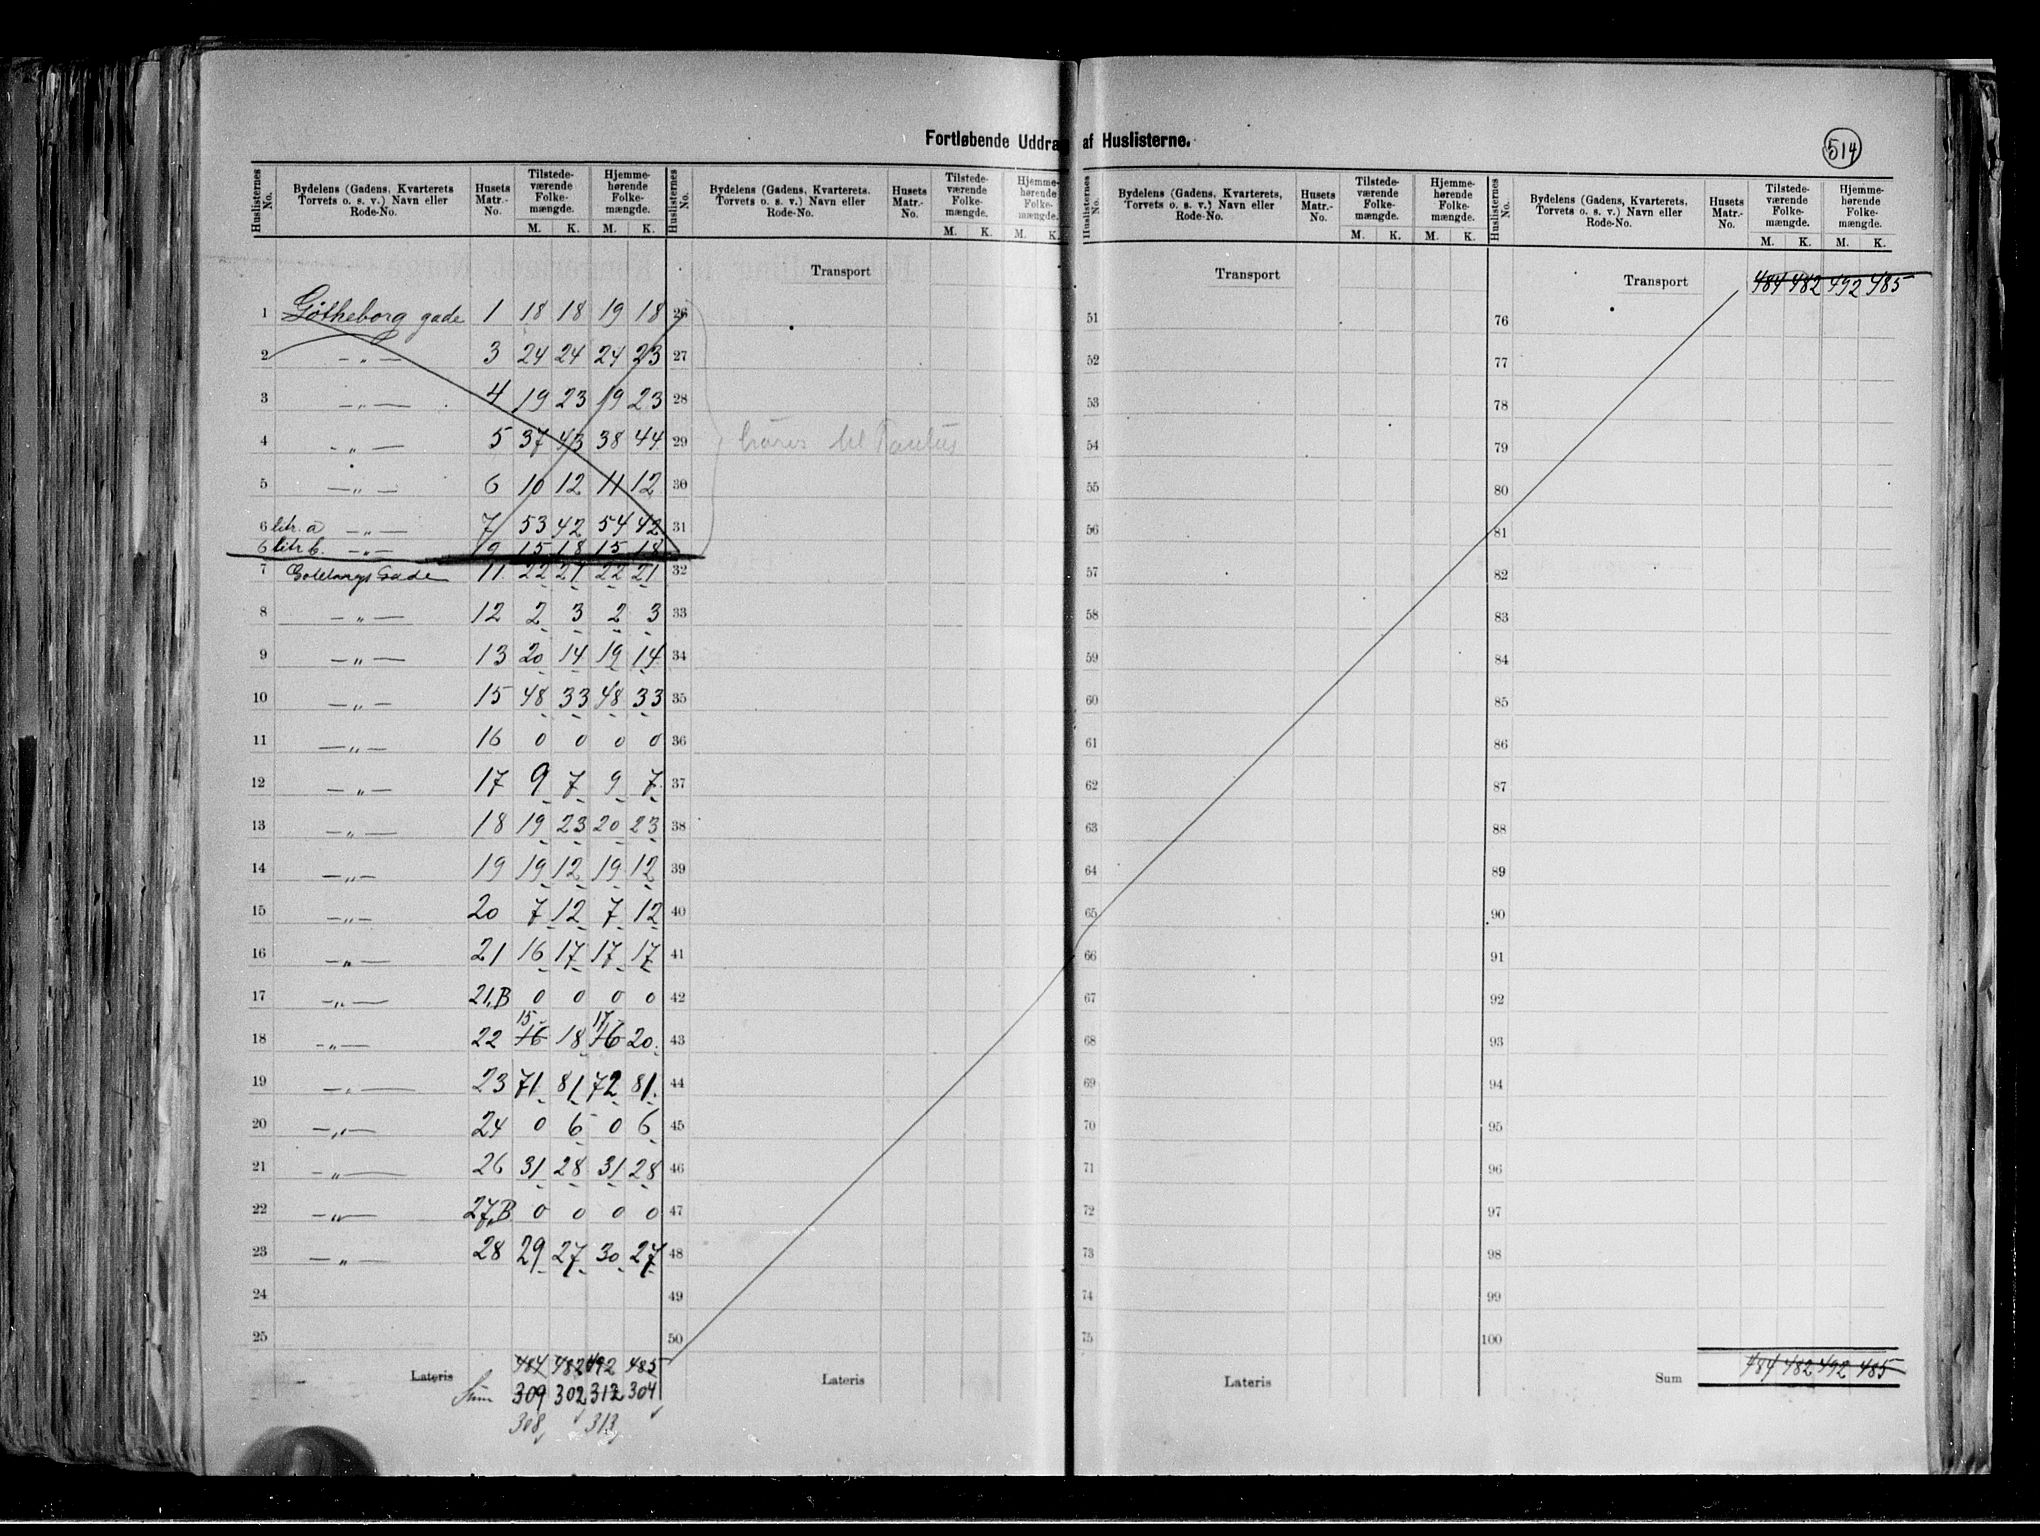 Fortløbende Uddrag af Huslisterne.
514
Huslisternes No. Bydelens (Gadens, Kvarterets Torvets o. s. v.) Navn eller Rode-No. Husets Matr.-No. Tilstedeværende Folkemængde. M. K. Hjemmehørende Folkemængde. M. K.
Huslisternes No. Bydelens (Gadens, Kvarterets, Torvets o. s. v.) Navn eller Rode-No. Husets Matr.-No. Tilstedeværende Folkemængde. M. K. Hjemmehørende Folkemængde. M. K.
Huslisternes No. Bydelens (Gadens, Kvarterets, Torvets o. s. v.) Navn eller Rode-No. Husets Matr.-No. Tilstedeværende Folkemængde. M. K. Hjemmehørende Folkemængde. M. K.
Huslisternes No. Bydelens (Gadens, Kvarterets, Torvets o. s. v.) Navn eller Rode-No. Husets Matr.-No. Tilstedeværende Folkemængde. M. K. Hjemmehørende Folkemængde. M. K.
Transport Transport Transport 484 482 492 485
1 Gøtheborg gade 1 18 18 19 18 26 51 76
2 — „ — 3 24 24 24 23 27 52 77
3 — „ — 4 19 23 19 23 28 53 78
4 — „ — 5 37 43 38 44 29 til 54 79
5 — „ — 6 10 12 11 12 30 55 80
6 litr. a — „ — 7 53 42 54 42 31 56 81
6 litr b. — „ — 9 15 18 15 18
7 Gade 11 22 21 22 21 32 57 82
8 — „ — 12 2 3 2 3 33 58 83
9 — „ — 13 20 14 19 14 34 59 84
10 — „ — 15 48 33 48 33 35 60 85
11 — „ — 16 0 0 0 0 36 61 86
12 — „ — 17 9 7 9 7 37 62 87
13 — „ — 18 19 23 20 23 38 63 88
14 — „ — 19 19 12 19 12 39 64 89
15 — „ — 20 7 12 7 12 40 65 90
16 — „ — 21 16 17 17 17 41 66 91
17 — „ — 21,B 0 0 0 0 42 67 92
15 17
18 — „ — 22 16 18 16 20 43 68 93
19 — „ — 23 71 81 72 81 44 69 94
20 — „ — 24 0 6 0 6 45 70 95
21 — „ — 26 31 28 31 28 46 71 96
22 — „ — 27,B 0 0 0 0 47 72 97
23 — „ — 28 29 27 30 27 48 73 98
24 49 74 99
25 50 75 100
Lateris 484 482 492 485 Lateris Lateris Sum 484 482 492 485
Sum 309 302 312 304
308 313